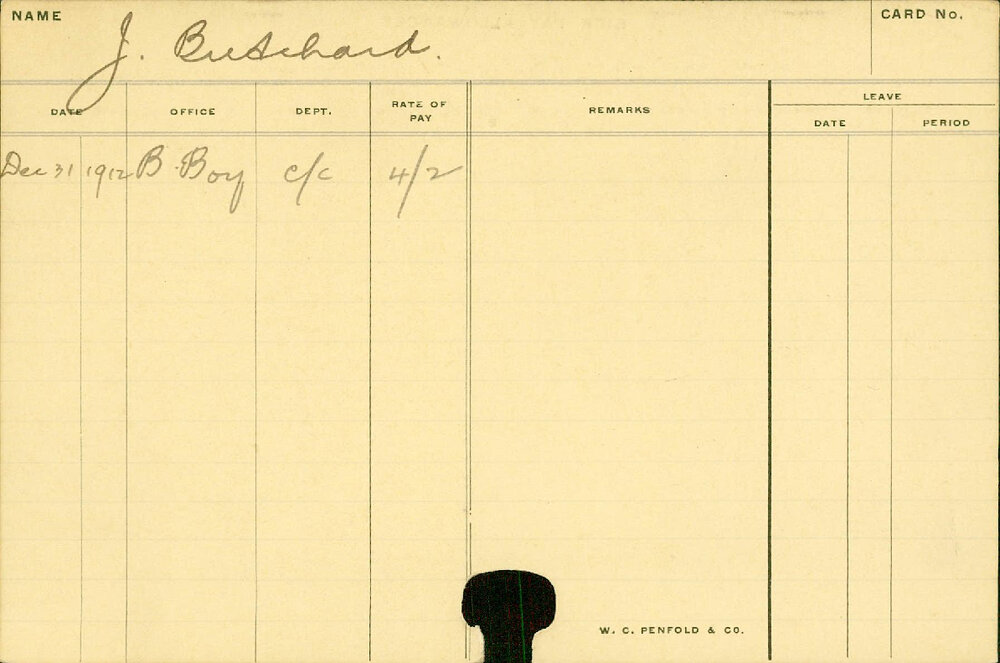 NAME J. Butchard. CARD No.
DATE OFFICE DEPT. RATE OF PAY REMARKS LEAVE
DATE PERIOD
Dec 31 1912 B. Boy c/c 4/2
W. C. PENFOLD & CO.